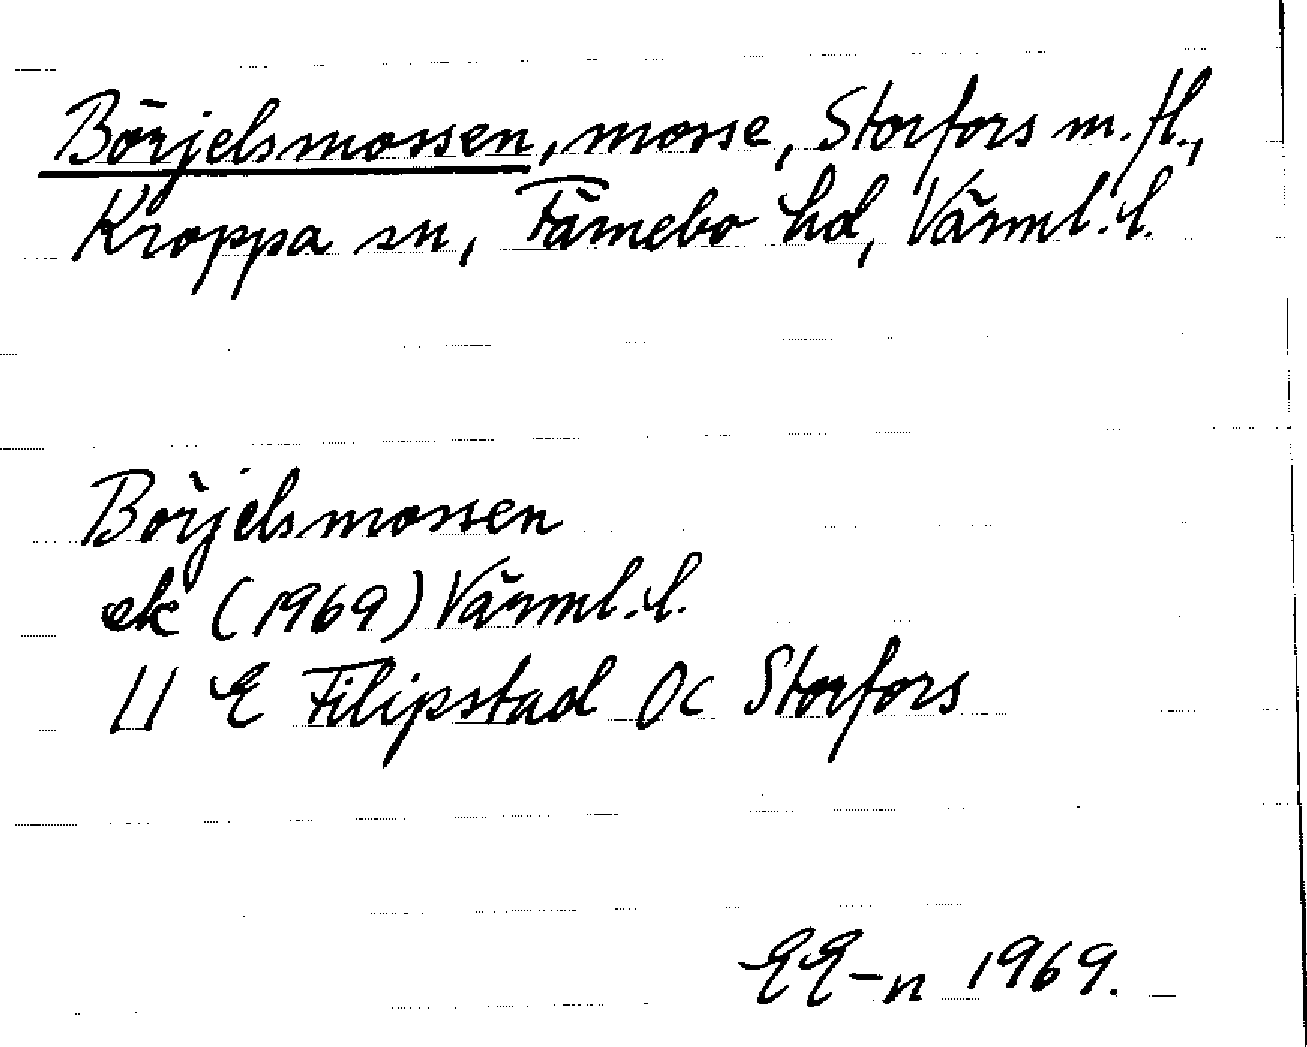 Börjelsmossen, mosse, Storfors m. fl.,
Kroppa sn, Färnebo hd, Värml. l.
Börjelsmossen
ek (1969) Värml. l.
11 E Filipstad 0c Storfors
EE-n 1969.